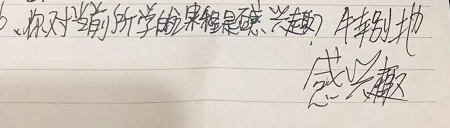 、你对当前所学的课程是否感兴趣？特别地
感兴趣